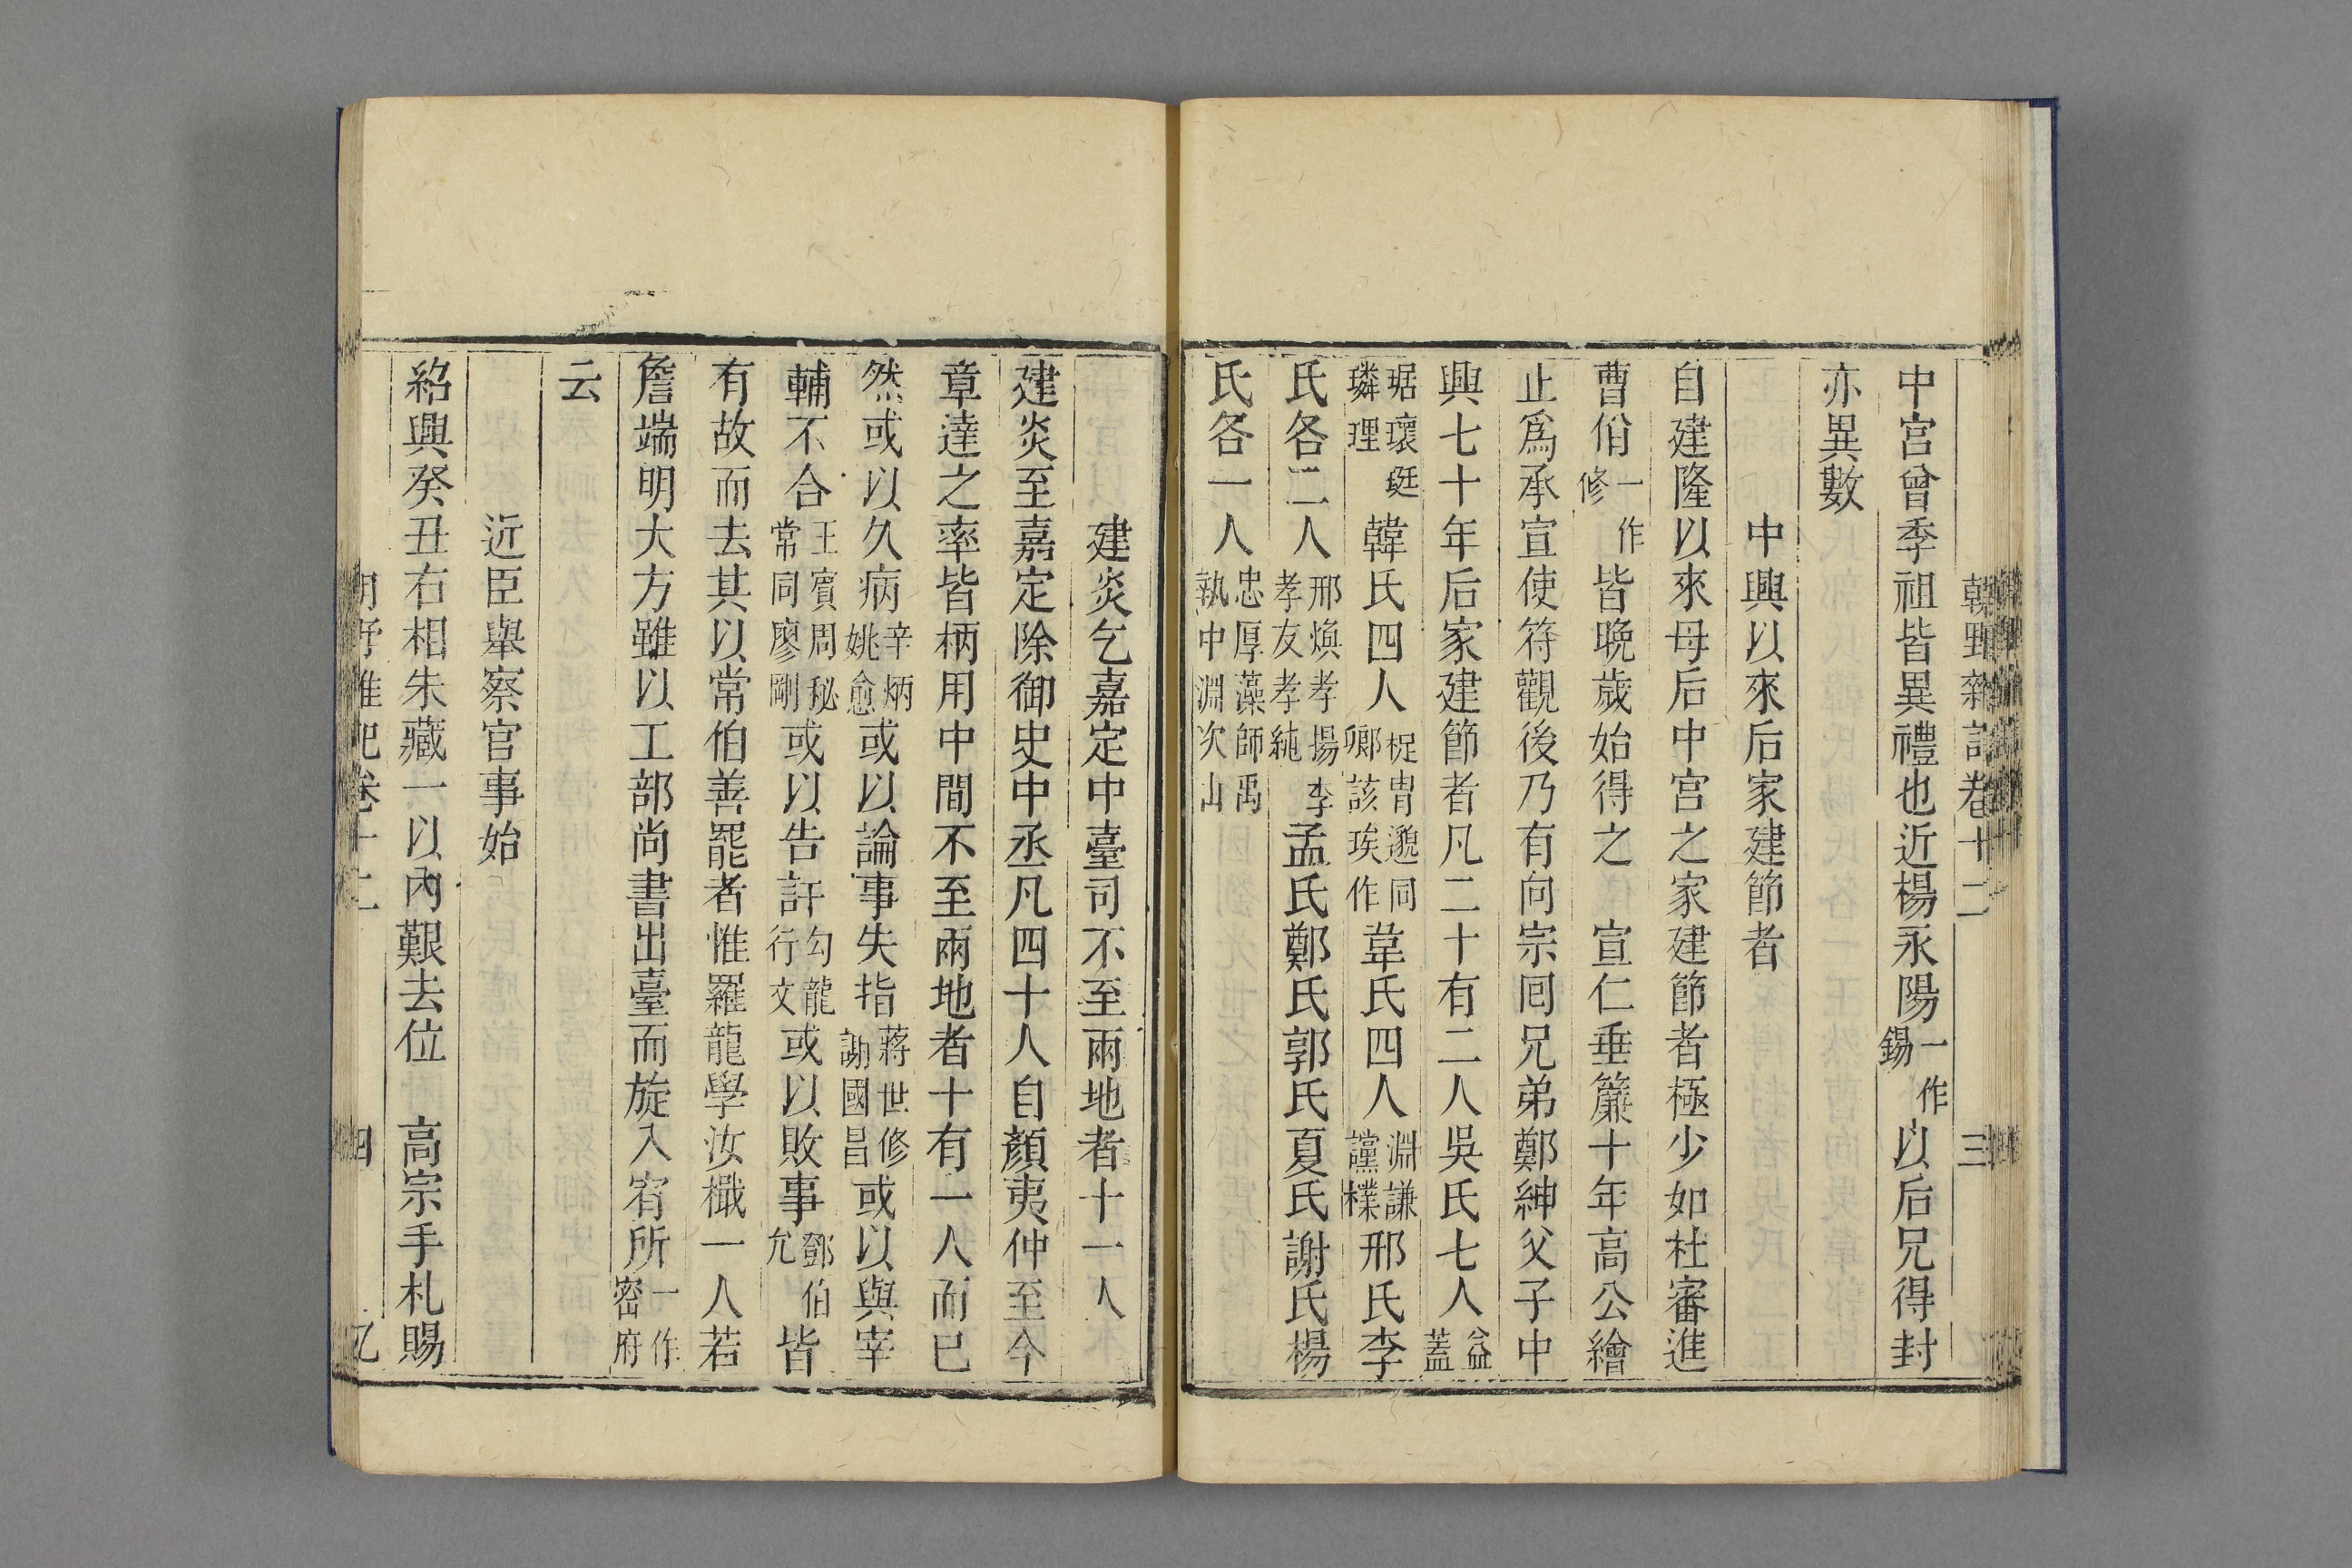 中宮曾季祖皆異禮也近楊永陽一作錫以后兄得封
亦異數
中興以來后家建節者
自建隆以來母后中宮之家建節者極少如杜審進
曹佾一作修皆晩歲始得之 宣仁垂簾十年高公繪
止爲承宣使符觀後乃有向宗囘兄弟鄭紳父子中
興七十年后家建節者凡二十有二人吳氏七人益蓋
琚瓌珽璘理韓氏四人侂胄邈同卿該埃作韋氏四人淵謙讜檏邢氏李
氏各二人邢煥孝揚李孝友孝純孟氏鄭氏郭氏夏氏謝氏楊
氏各一人忠厚藻師禹執中淵次山
建炎乞嘉定中臺司不至兩地者十一人
建炎至嘉定除御史中丞凡四十人自顏夷仲至今
章達之率皆柄用中間不至兩地者十有一人而已
然或以久病辛炳姚愈或以論事失指蔣世修謝國昌或以與宰
輔不合王賓周秘常同廖剛或以告訐勾龍行文或以敗事鄧伯允皆
有故而去其以常伯善罷者惟羅龍學汝檝一人若
詹端明大方雖以工部尚書出臺而旋入宥所一作密府
云
近臣舉察官事始
紹興癸丑右相朱藏一以內艱去位 高宗手札賜